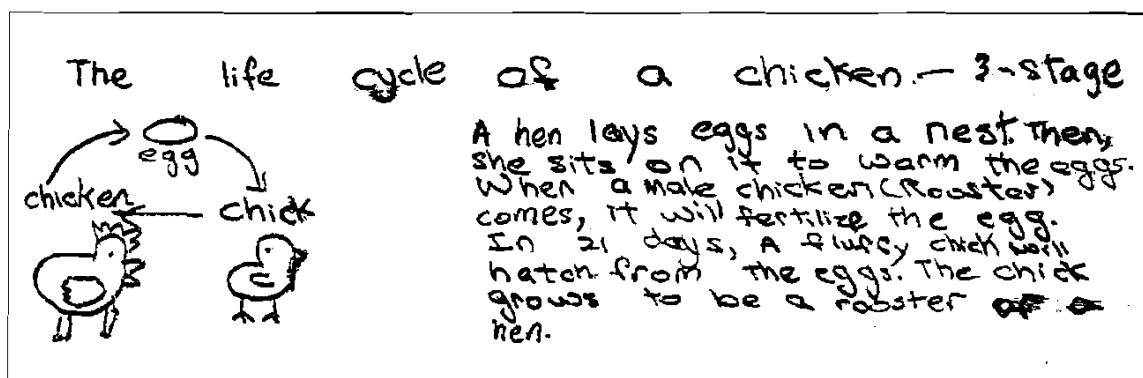 The life cycle of a chicken - 3-stage
egg
chicken
chick
A hen lays eggs in a nest. Then,
she sits on it to warm the eggs.
When a male chicken (Rooster)
comes, it will fertilize the egg.
In 21 days, A fluffy chick will
hatch from the eggs. The chick
grows to be a rooster or a
hen.